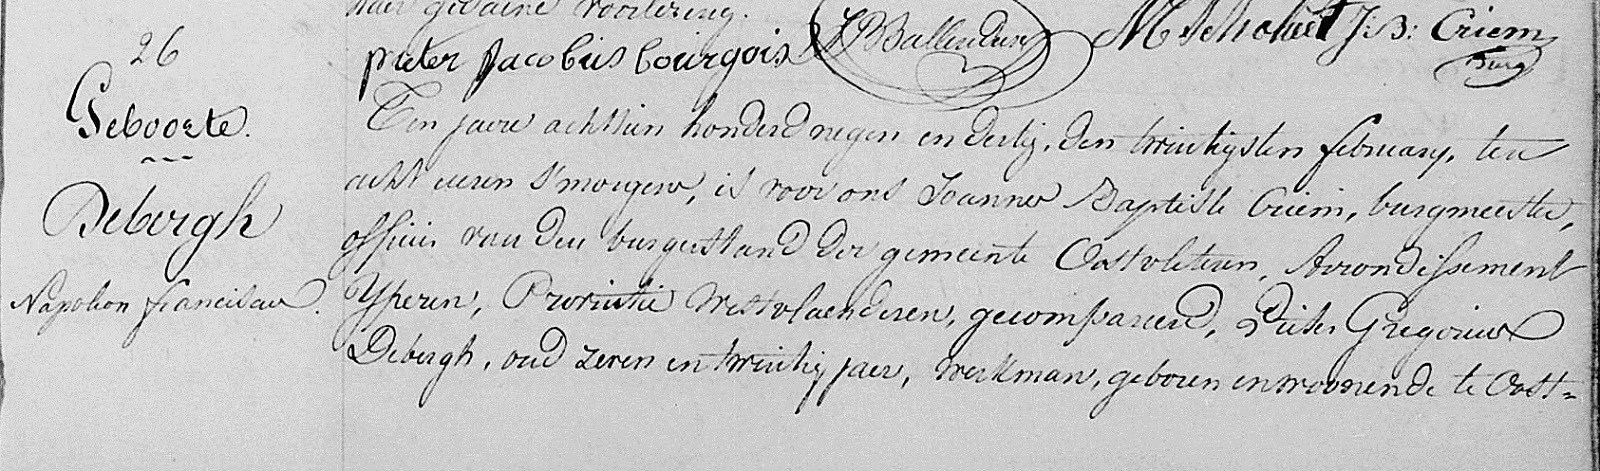 naer gedaene voorlezing.
pieter jacobus bourgois JB Ballendure M J: B: Criem
Burg
26
Geboorte.
Debergh
Napoleon franciscus.
Ten jaere achttien honderd negen en dertig, den twintigsten february, ten
acht ueren s'morgens, is voor ons Joannes Baptiste Criem, burgmeester,
officier van den burgerstand der gemeente Oostvleteren, Arrondissement
Yperen, Provintie Westvlaenderen, gecompareerd, Pieter Gregorius
Debergh, oud zeven en twintig jaer, werkman, geboren en woonende te Oost=